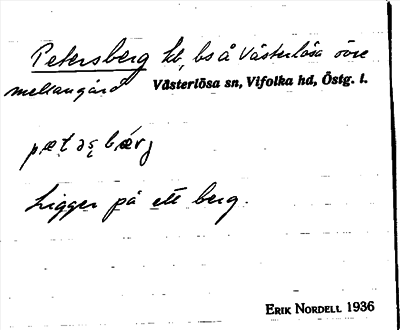 Petersberg hl, bs å Västerlösa övre
mellangård Västerlösa sn, Vifolka hd, Östg. l.
Ligger på ett berg.
ERIK NORDELL 1936